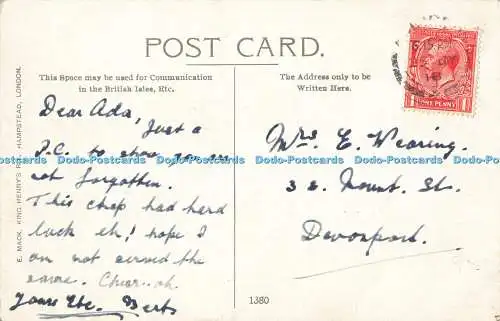 POST CARD.
This Space may be used for Communication
in the British Isles, Etc.
The Address only to be
Written Here.
Dear Ada, Just a
P.C. to show you are
not forgotten.
This chap had hard
luck eh! hope I
am not served the
same. Cheer-oh.
Yours Etc. Bert
Mrs E. Wearing.
32 Mount St.
Devonport.
E. MACK, KING HENRY'S ROAD, HAMPSTEAD, LONDON.
1380
ONE PENNY
Dodo-Postcards Dodo-Postcards Dodo-Postcards Dodo-Postcards Dodo-Postcards